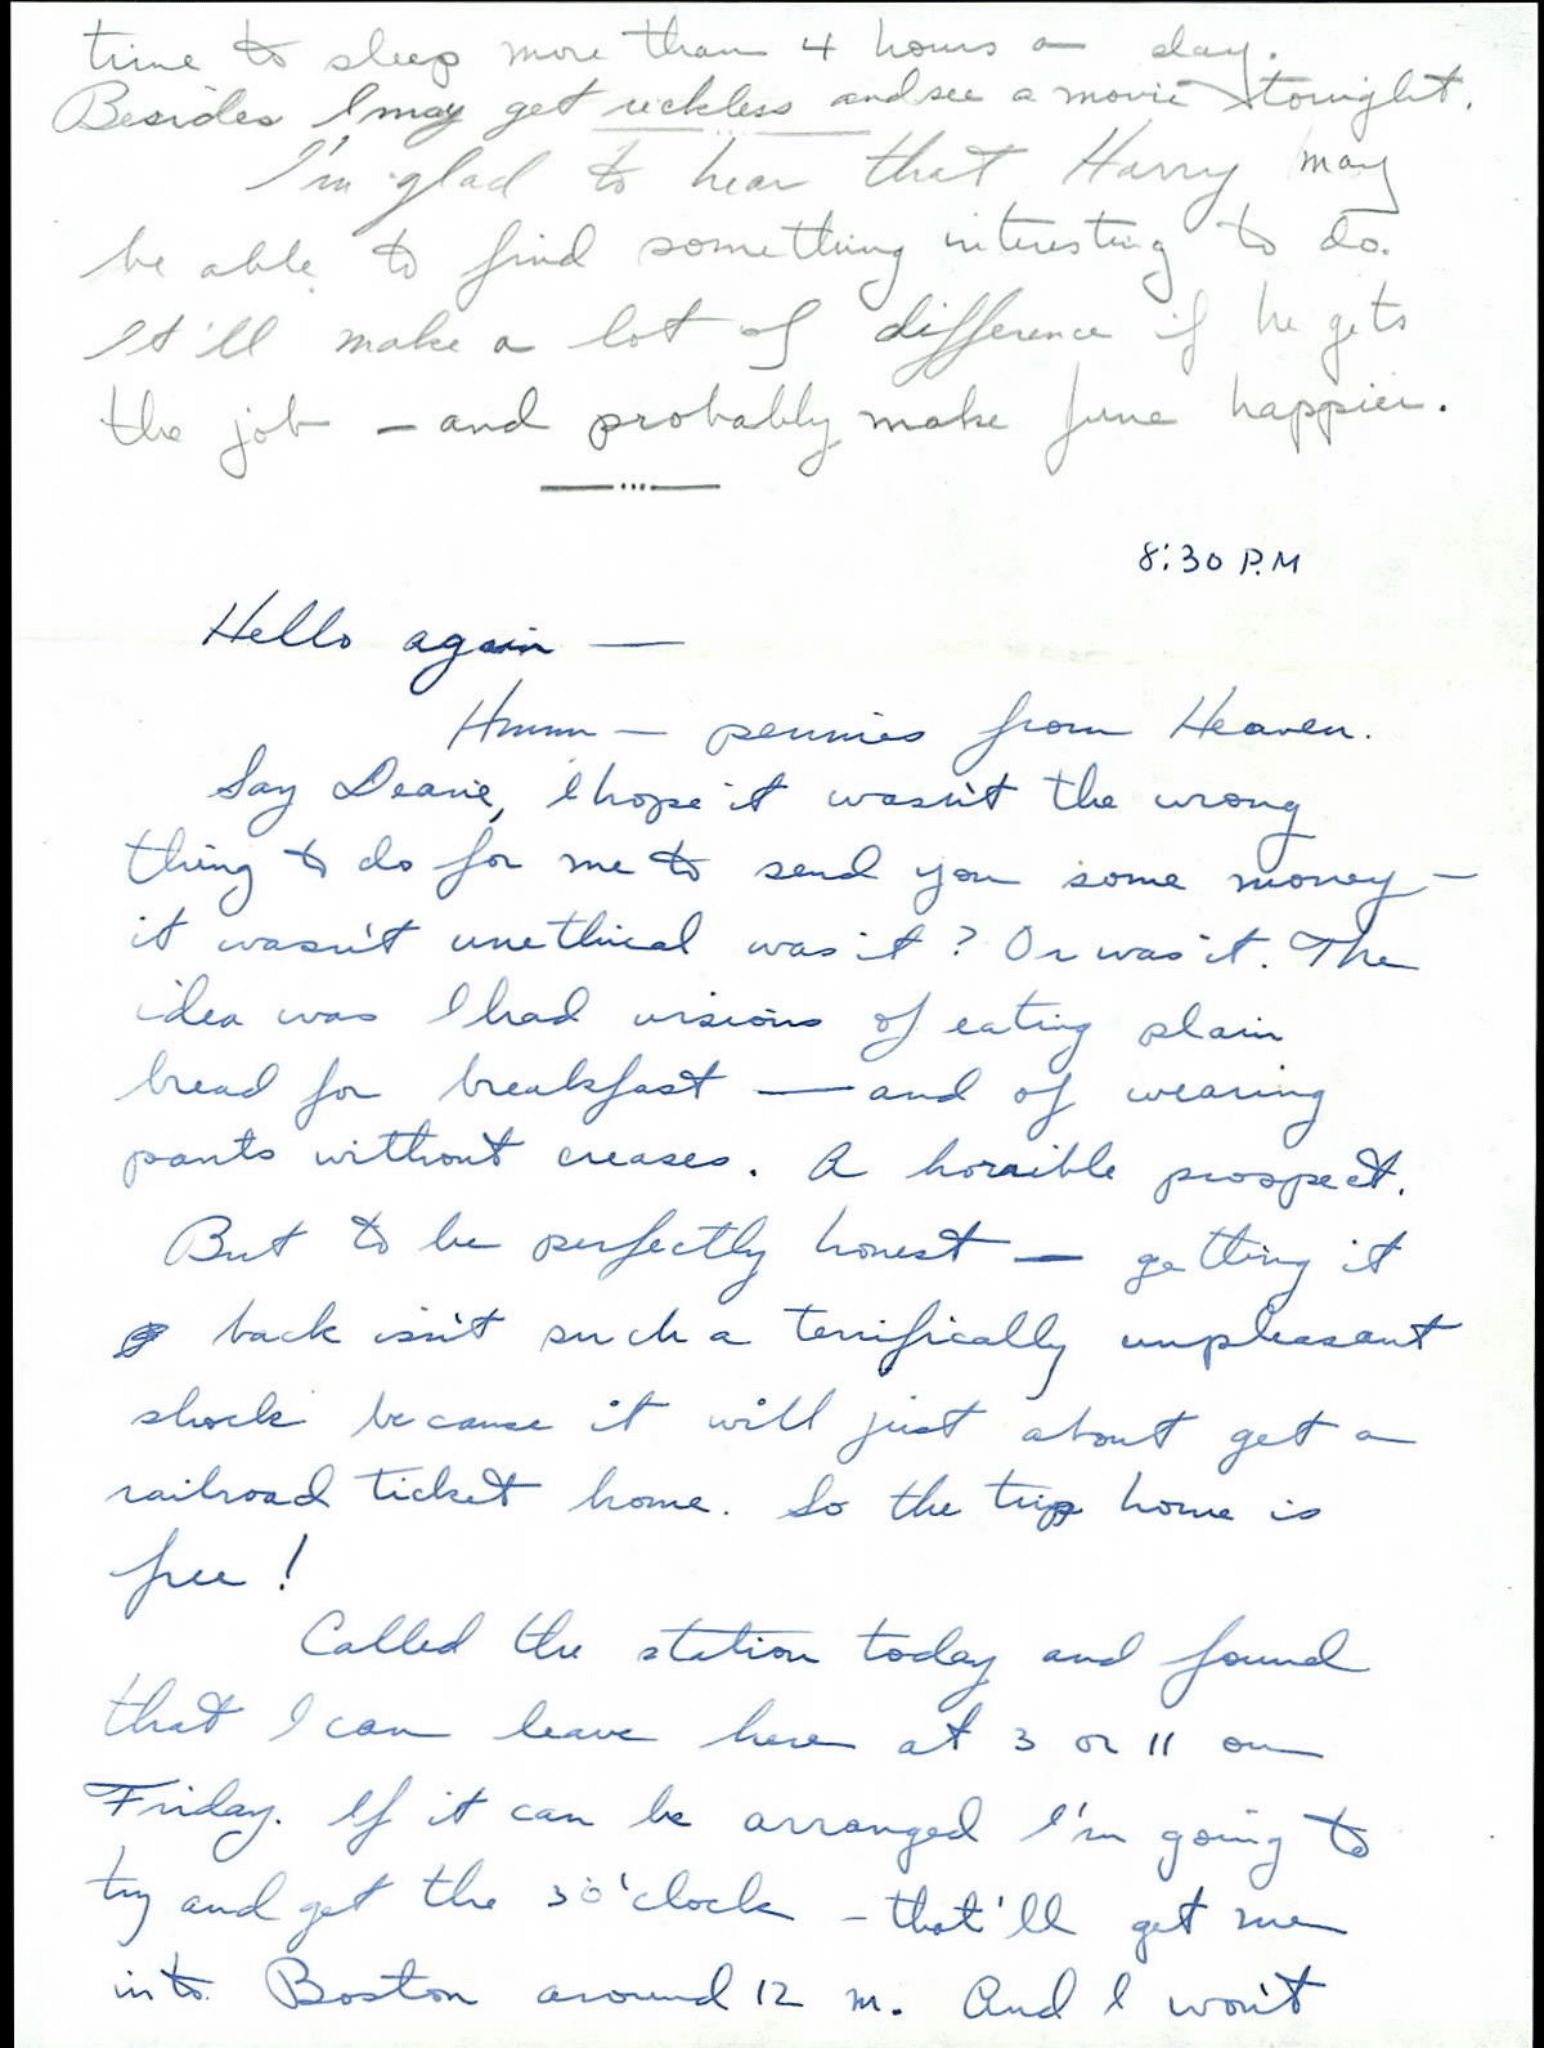 time to sleep more than 4 hours a day.
Besides I may get reckless and see a movie tonight.
I'm glad to hear that Harry may
be able to find something interesting to do.
It'll make a lot of difference if he gets
the job – and probably make June happier.
8:30 P.M
Hello again —
Hmmm — pennies from Heaven.
Say Deanie, I hope it wasn't the wrong
thing to do for me to send you some money –
it wasn't unethical was it? Or was it. The
idea was I had visions of eating plain
bread for breakfast — and of wearing
pants without creases. A horrible prospect.
But to be perfectly honest — getting it
back isn't such a terrifically unpleasant
shock because it will just about get a
railroad ticket home. So the trip home is
free!
Called the station today and found
that I can leave here at 3 or 11 on
Friday. If it can be arranged I'm going to
try and get the 3 o'clock – that'll get me
into Boston around 12 m. And I won't